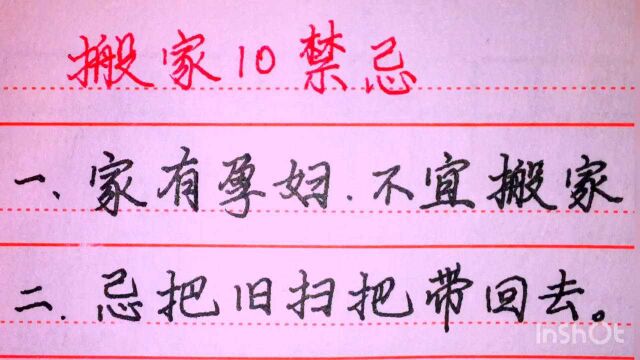 搬家10禁忌
一、家有孕妇.不宜搬家
二.忌把旧扫把带回去。
InShOt